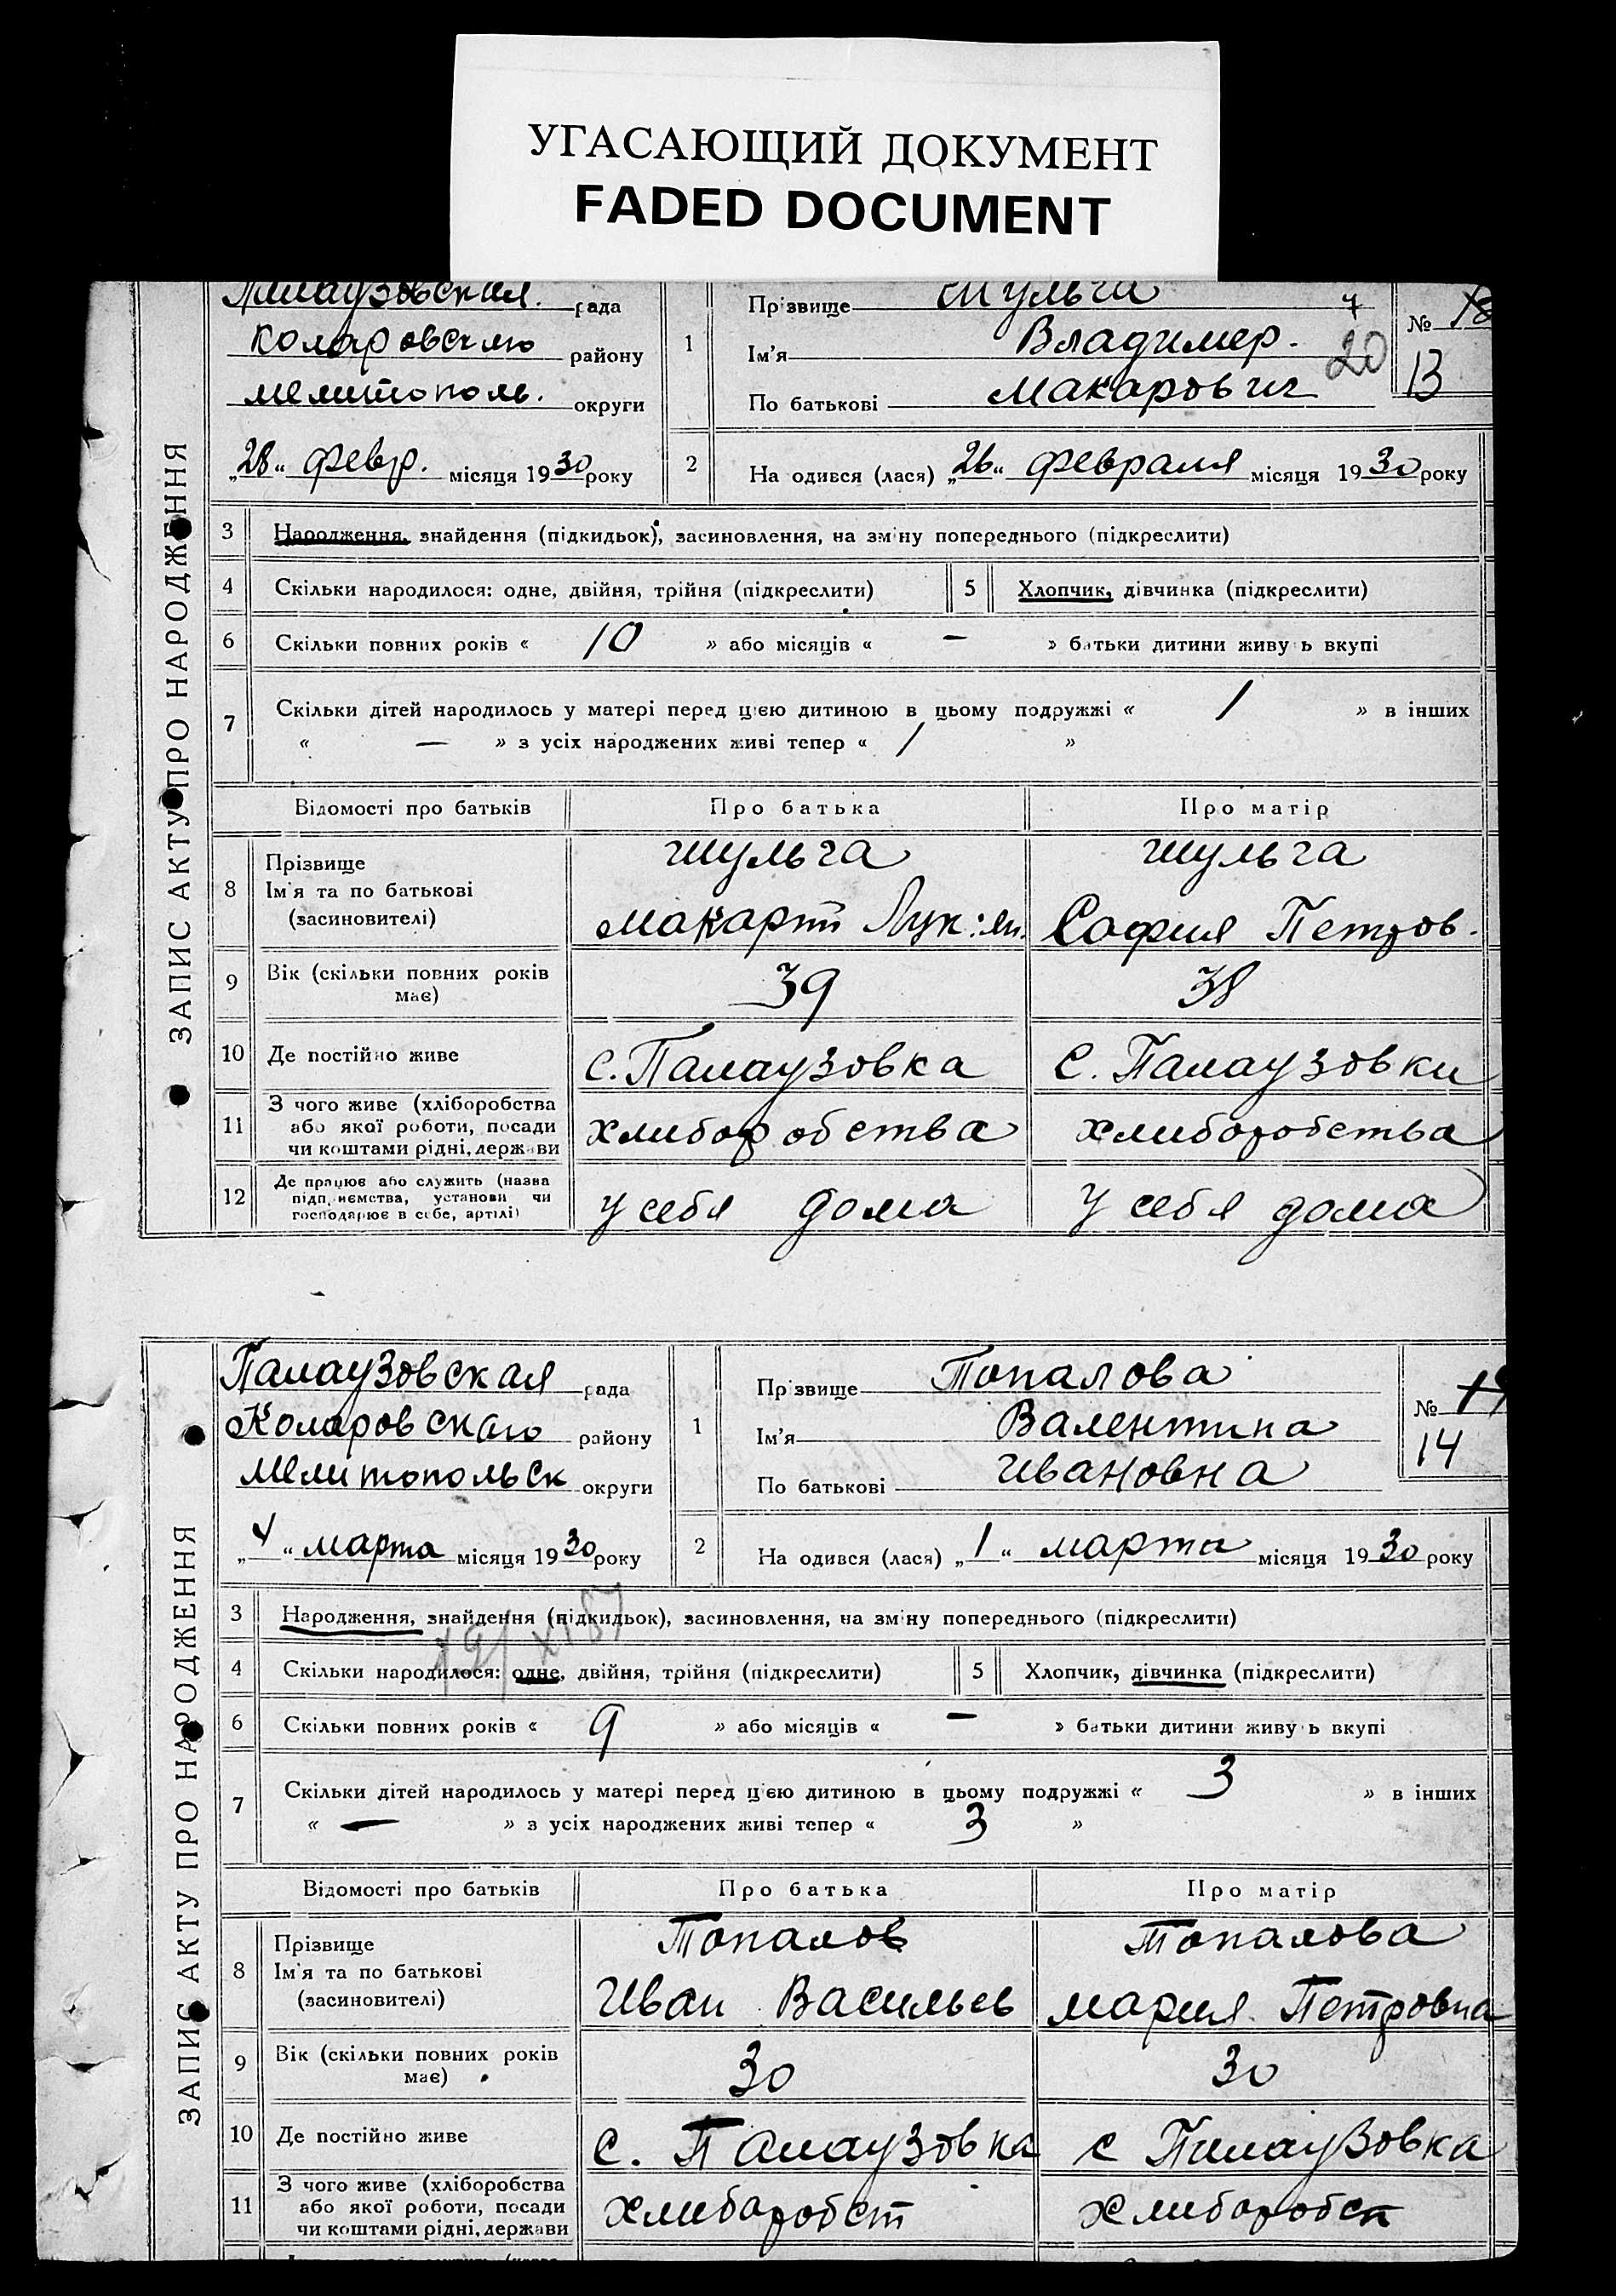 УГАСАЮЩИЙ ДОКУМЕНТ
FADED DOCUMENT
ЗАПИС АКТУ ПРО НАРОДЖЕННЯ
Палаузовская рада
Коларовского району
Мелитополь. округи
„28“ февр. місяця 1930 року
1
Прізвище Шульга 7
Ім'я Владимер. 20
По батькові Макарович
№ 18
13
2
Народився (лася) „26“ февраля місяця 1930 року
3 Народження, знайдення (підкидьок), засиновлення, на зміну попереднього (підкреслити)
4 Скільки народилося: одне, двійня, трійня (підкреслити) 5 Хлопчик, дівчинка (підкреслити)
6 Скільки повних років « 10 » або місяців « — » батьки дитини живуть вкупі
7 Скільки дітей народилось у матері перед цією дитиною в цьому подружжі « 1 » в інших
« — » з усіх народжених живі тепер « 1 »
Відомості про батьків Про батька Про матір
8 Прізвище Шульга Шульга
Ім'я та по батькові
(засиновителі) Макарт Лук:ян. София Петров.
9 Вік (скільки повних років має) 39 38
10 Де постійно живе с. Палаузовка с. Палаузовки
11 З чого живе (хліборобства
або якої роботи, посади хлиборобства хлиборобства
чи коштами рідні, держави
12 Де працює або служить (назва
підприємства, установи чи у себя дома у себя дома
господарює в себе, артілі)
ЗАПИС АКТУ ПРО НАРОДЖЕННЯ
Палаузовская рада
Коларовского району
Мелитопольск округи
„4“ марта місяця 1930 року
1
Прізвище Топалова
Ім'я Валентина
По батькові Ивановна
№ 19
14
2
Народився (лася) „1“ марта місяця 1930 року
3 Народження, знайдення (підкидьок), засиновлення, на зміну попереднього (підкреслити)
4 Скільки народилося: одне, двійня, трійня (підкреслити) 5 Хлопчик, дівчинка (підкреслити)
6 Скільки повних років « 9 » або місяців « — » батьки дитини живуть вкупі
7 Скільки дітей народилось у матері перед цією дитиною в цьому подружжі « 3 » в інших
« — » з усіх народжених живі тепер « 3 »
Відомості про батьків Про батька Про матір
8 Прізвище Топалов Топалова
Ім'я та по батькові
(засиновителі) Иван Васильев Мария Петровна
9 Вік (скільки повних років має) 30 30
10 Де постійно живе с. Палаузовка с Палаузовка
11 З чого живе (хліборобства
або якої роботи, посади хлиборобст хлиборобст
чи коштами рідні, держави